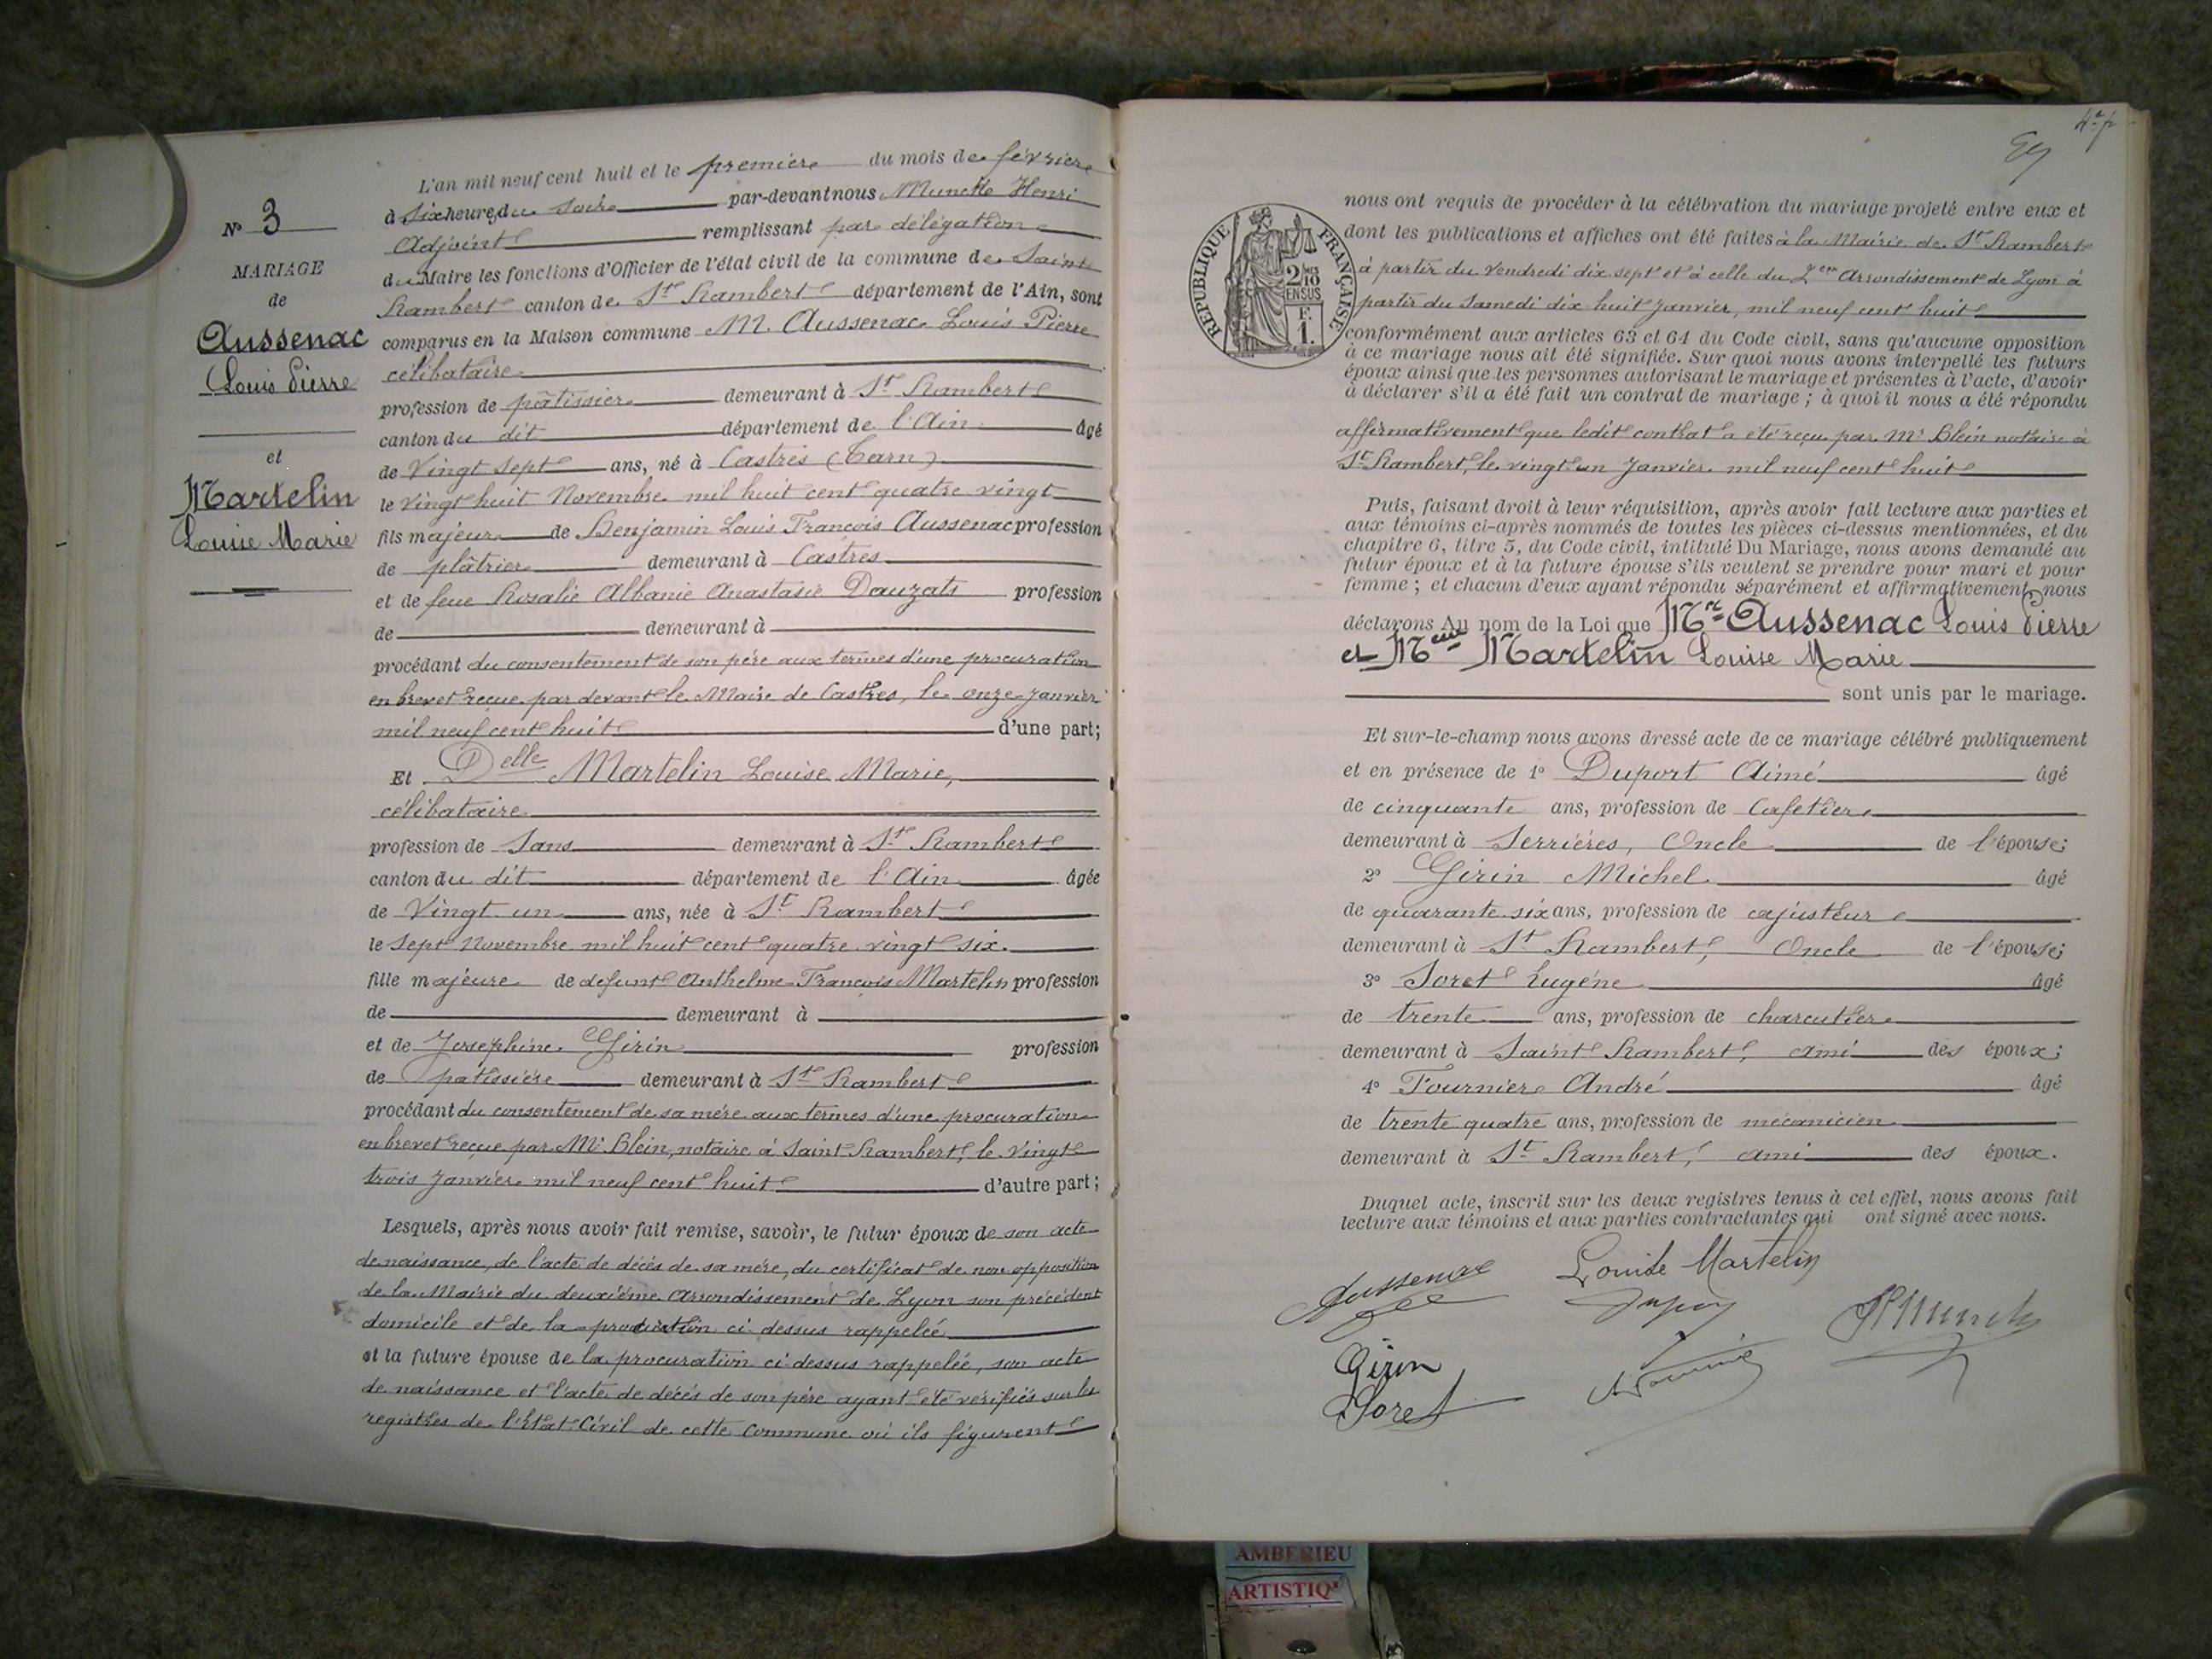 N° 3
MARIAGE
de
Aussenac
Louis Pierre
et
Martelin
Louise Marie
L'an mil neuf cent huit et le premier du mois de février
à six heures du soir par-devant nous Munck Henri
Adjoint remplissant par délégation
du Maire les fonctions d'Officier de l'état civil de la commune de Saint
Rambert canton de St Rambert département de l'Ain, sont
comparus en la Maison commune M. Aussenac Louis Pierre
célibataire
profession de pâtissier demeurant à St Rambert
canton du dit département de l'Ain âgé
de vingt sept ans, né à Castres (Tarn)
le vingt huit Novembre mil huit cent quatre vingt
fils majeur de Benjamin Louis François Aussenac profession
de plâtrier demeurant à Castres
et de feue Rosalie Albanie Anastasie Dauzats profession
de demeurant à
procédant du consentement de son père aux termes d'une procuration
en brevet reçue par devant le Maire de Castres, le onze janvier
mil neuf cent huit d'une part;
Et Delle Martelin Louise Marie,
célibataire
profession de Sans demeurant à St Rambert
canton du dit département de l'Ain âgée
de Vingt un ans, née à St Rambert
le sept Novembre mil huit cent quatre vingt six.
fille majeure de défunt Anthelme François Martelin profession
de demeurant à
et de Josephine Girin profession
de patissière demeurant à St Rambert
procédant du consentement de sa mère aux termes d'une procuration
en brevet reçue par Me Blein, notaire à Saint Rambert, le Vingt
trois Janvier mil neuf cent huit d'autre part;
Lesquels, après nous avoir fait remise, savoir, le futur époux de son acte
de naissance, de l'acte de décès de sa mère, du certificat de non opposition
de la Mairie du deuxième Arrondissement de Lyon son précédent
domicile et de la procuration ci dessus rappelée
et la future épouse de la procuration ci dessus rappelée, son acte
de naissance et l'acte de décès de son père ayant été vérifiés sur les
registres de l'Etat Civil de cette Commune où ils figurent
RÉPUBLIQUE FRANÇAISE
2/10
EN SUS
F.
1.
nous ont requis de procéder à la célébration du mariage projeté entre eux et
dont les publications et affiches ont été faites à la Mairie de St Rambert
à partir du Vendredi dix sept et à celle du 2eme Arrondissement de Lyon à
partir du Samedi dix huit Janvier, mil neuf cent huit
conformément aux articles 63 et 64 du Code civil, sans qu'aucune opposition
à ce mariage nous ait été signifiée. Sur quoi nous avons interpellé les futurs
époux ainsi que les personnes autorisant le mariage et présentes à l'acte, d'avoir
à déclarer s'il a été fait un contrat de mariage ; à quoi il nous a été répondu
affirmativement que ledit contrat a été reçu par Me Blein notaire à
St Rambert, le vingt un Janvier mil neuf cent huit
Puis, faisant droit à leur réquisition, après avoir fait lecture aux parties et
aux témoins ci-après nommés de toutes les pièces ci-dessus mentionnées, et du
chapitre 6, titre 5, du Code civil, intitulé Du Mariage, nous avons demandé au
futur époux et à la future épouse s'ils veulent se prendre pour mari et pour
femme ; et chacun d'eux ayant répondu séparément et affirmativement, nous
déclarons Au nom de la Loi que Mr Aussenac Louis Pierre
et Melle Martelin Louise Marie
sont unis par le mariage.
Et sur-le-champ nous avons dressé acte de ce mariage célébré publiquement
et en présence de 1° Duport Aimé âgé
de cinquante ans, profession de Cafetier
demeurant à Serrières, Oncle de l'épouse;
2° Girin Michel âgé
de quarante six ans, profession de ajusteur
demeurant à St Rambert, Oncle de l'épouse;
3° Soret Eugène âgé
de trente ans, profession de charcutier
demeurant à Saint Rambert, ami des époux;
4° Fournier André âgé
de trente quatre ans, profession de mécanicien
demeurant à St Rambert, ami des époux.
Duquel acte, inscrit sur les deux registres tenus à cet effet, nous avons fait
lecture aux témoins et aux parties contractantes qui ont signé avec nous.
Aussenac
Louise Martelin
HMunck
Girin
Soret
AMBERIEU
ARTISTIQ